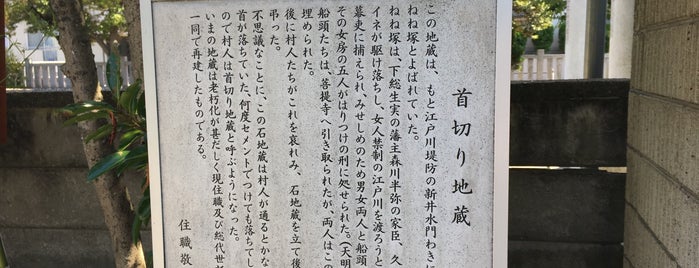 首切り地蔵
この地蔵は、もと江戸川堤防の新井水門わきに
ねね塚とよばれていた。
ねね塚は、下総生実の藩主森川半弥の家臣、久
イネが駆け落ちし、女人禁制の江戸川を渡ろうと
幕吏に捕えられ、みせしめのため男女両人と船頭
その女房の五人がはりつけの刑に処せられた。(天明
船頭たちは、菩提寺へ引き取られたが、両人はこの
埋められた。
後に村人たちがこれを哀れみ、石地蔵を立て後
弔った。
不思議なことに、この石地蔵は村人が通るとかな
首が落ちていた、何度セメントでつけても落ちてし
ので村人は首切り地蔵と呼ぶようになった。
いまの地蔵は老朽化が甚だしく現住職及び総代世
一同で再建したものである。
住職敬